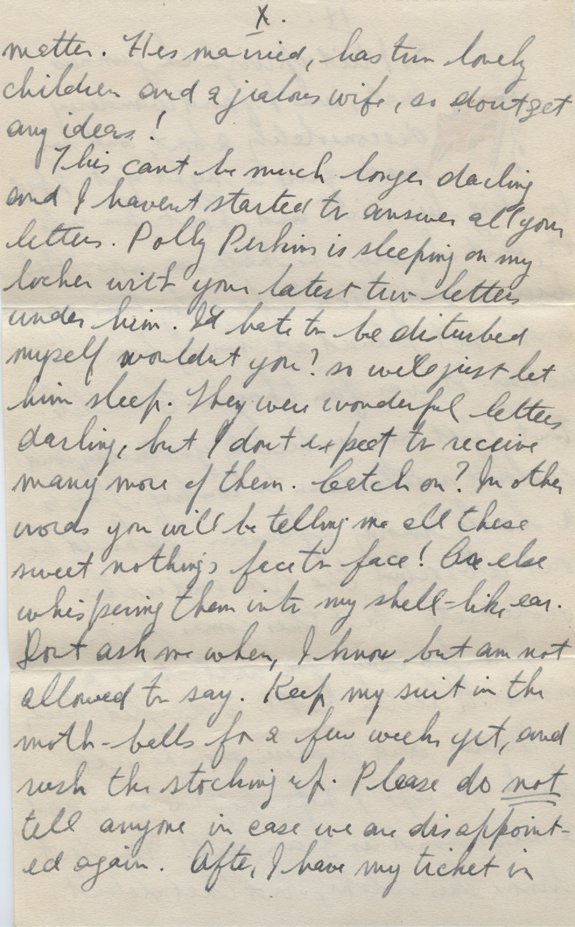 X.
matter. Hes married, has two lovely
children and a jealous wife, so dont get
any ideas!
This cant be much longer darling
and I havent started to answer all your
letters. Polly Perkins is sleeping on my
locker with your latest two letters
under him. Id hate to be disturbed
myself wouldnt you? so we'll just let
him sleep. They were wonderful letters
darling, but I dont expect to receive
many more of them. Catch on? In other
words you will be telling me all these
sweet nothings face to face! Or else
whispering them into my shell-like ear.
Dont ask me when, I know but am not
allowed to say. Keep my suit in the
moth-balls for a few weeks yet, and
rush the stocking up. Please do not
tell anyone in case we are disappoint-
ed again. After I have my ticket in